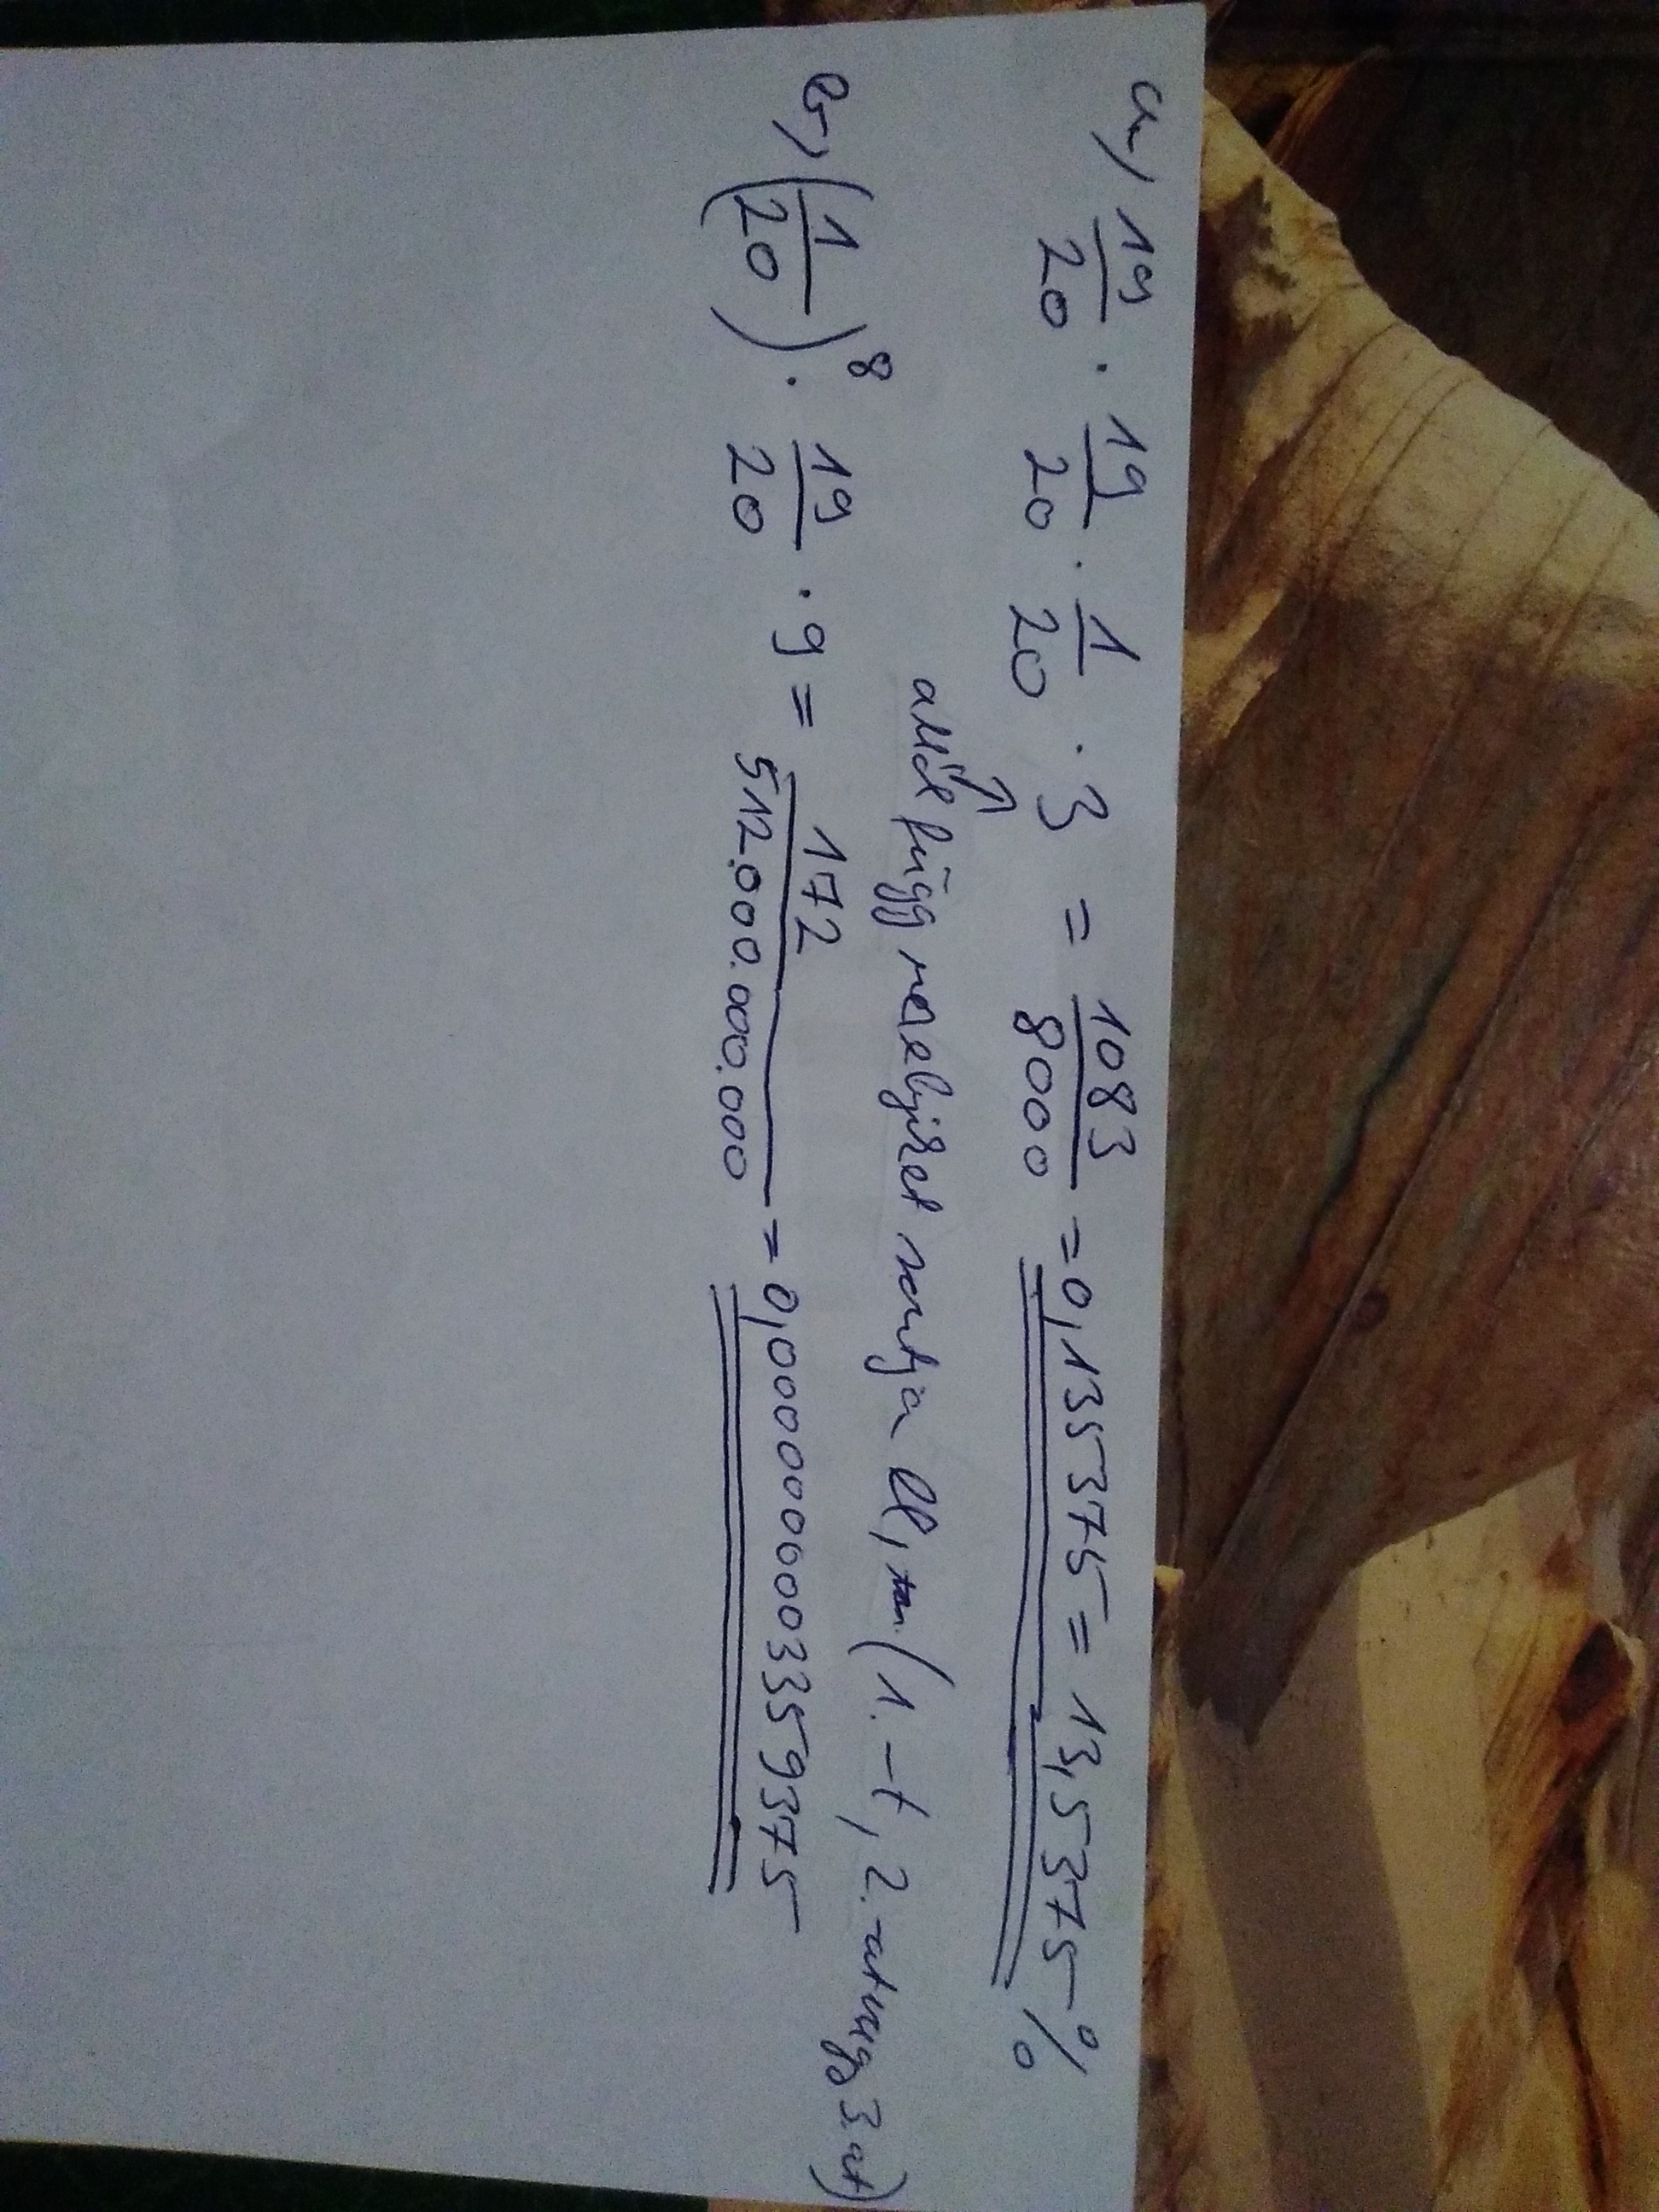 a, 19/20 · 19/20 · 1/20 · 3 = 1083/8000 = 0,135375 = 13,5375%
attól függ melyiket rontja el, (1.-t, 2.-at vagy 3.at)
b, (1/20)⁸ · 19/20 · 9 = 172/512.000.000.000 = 0,0000000003359375